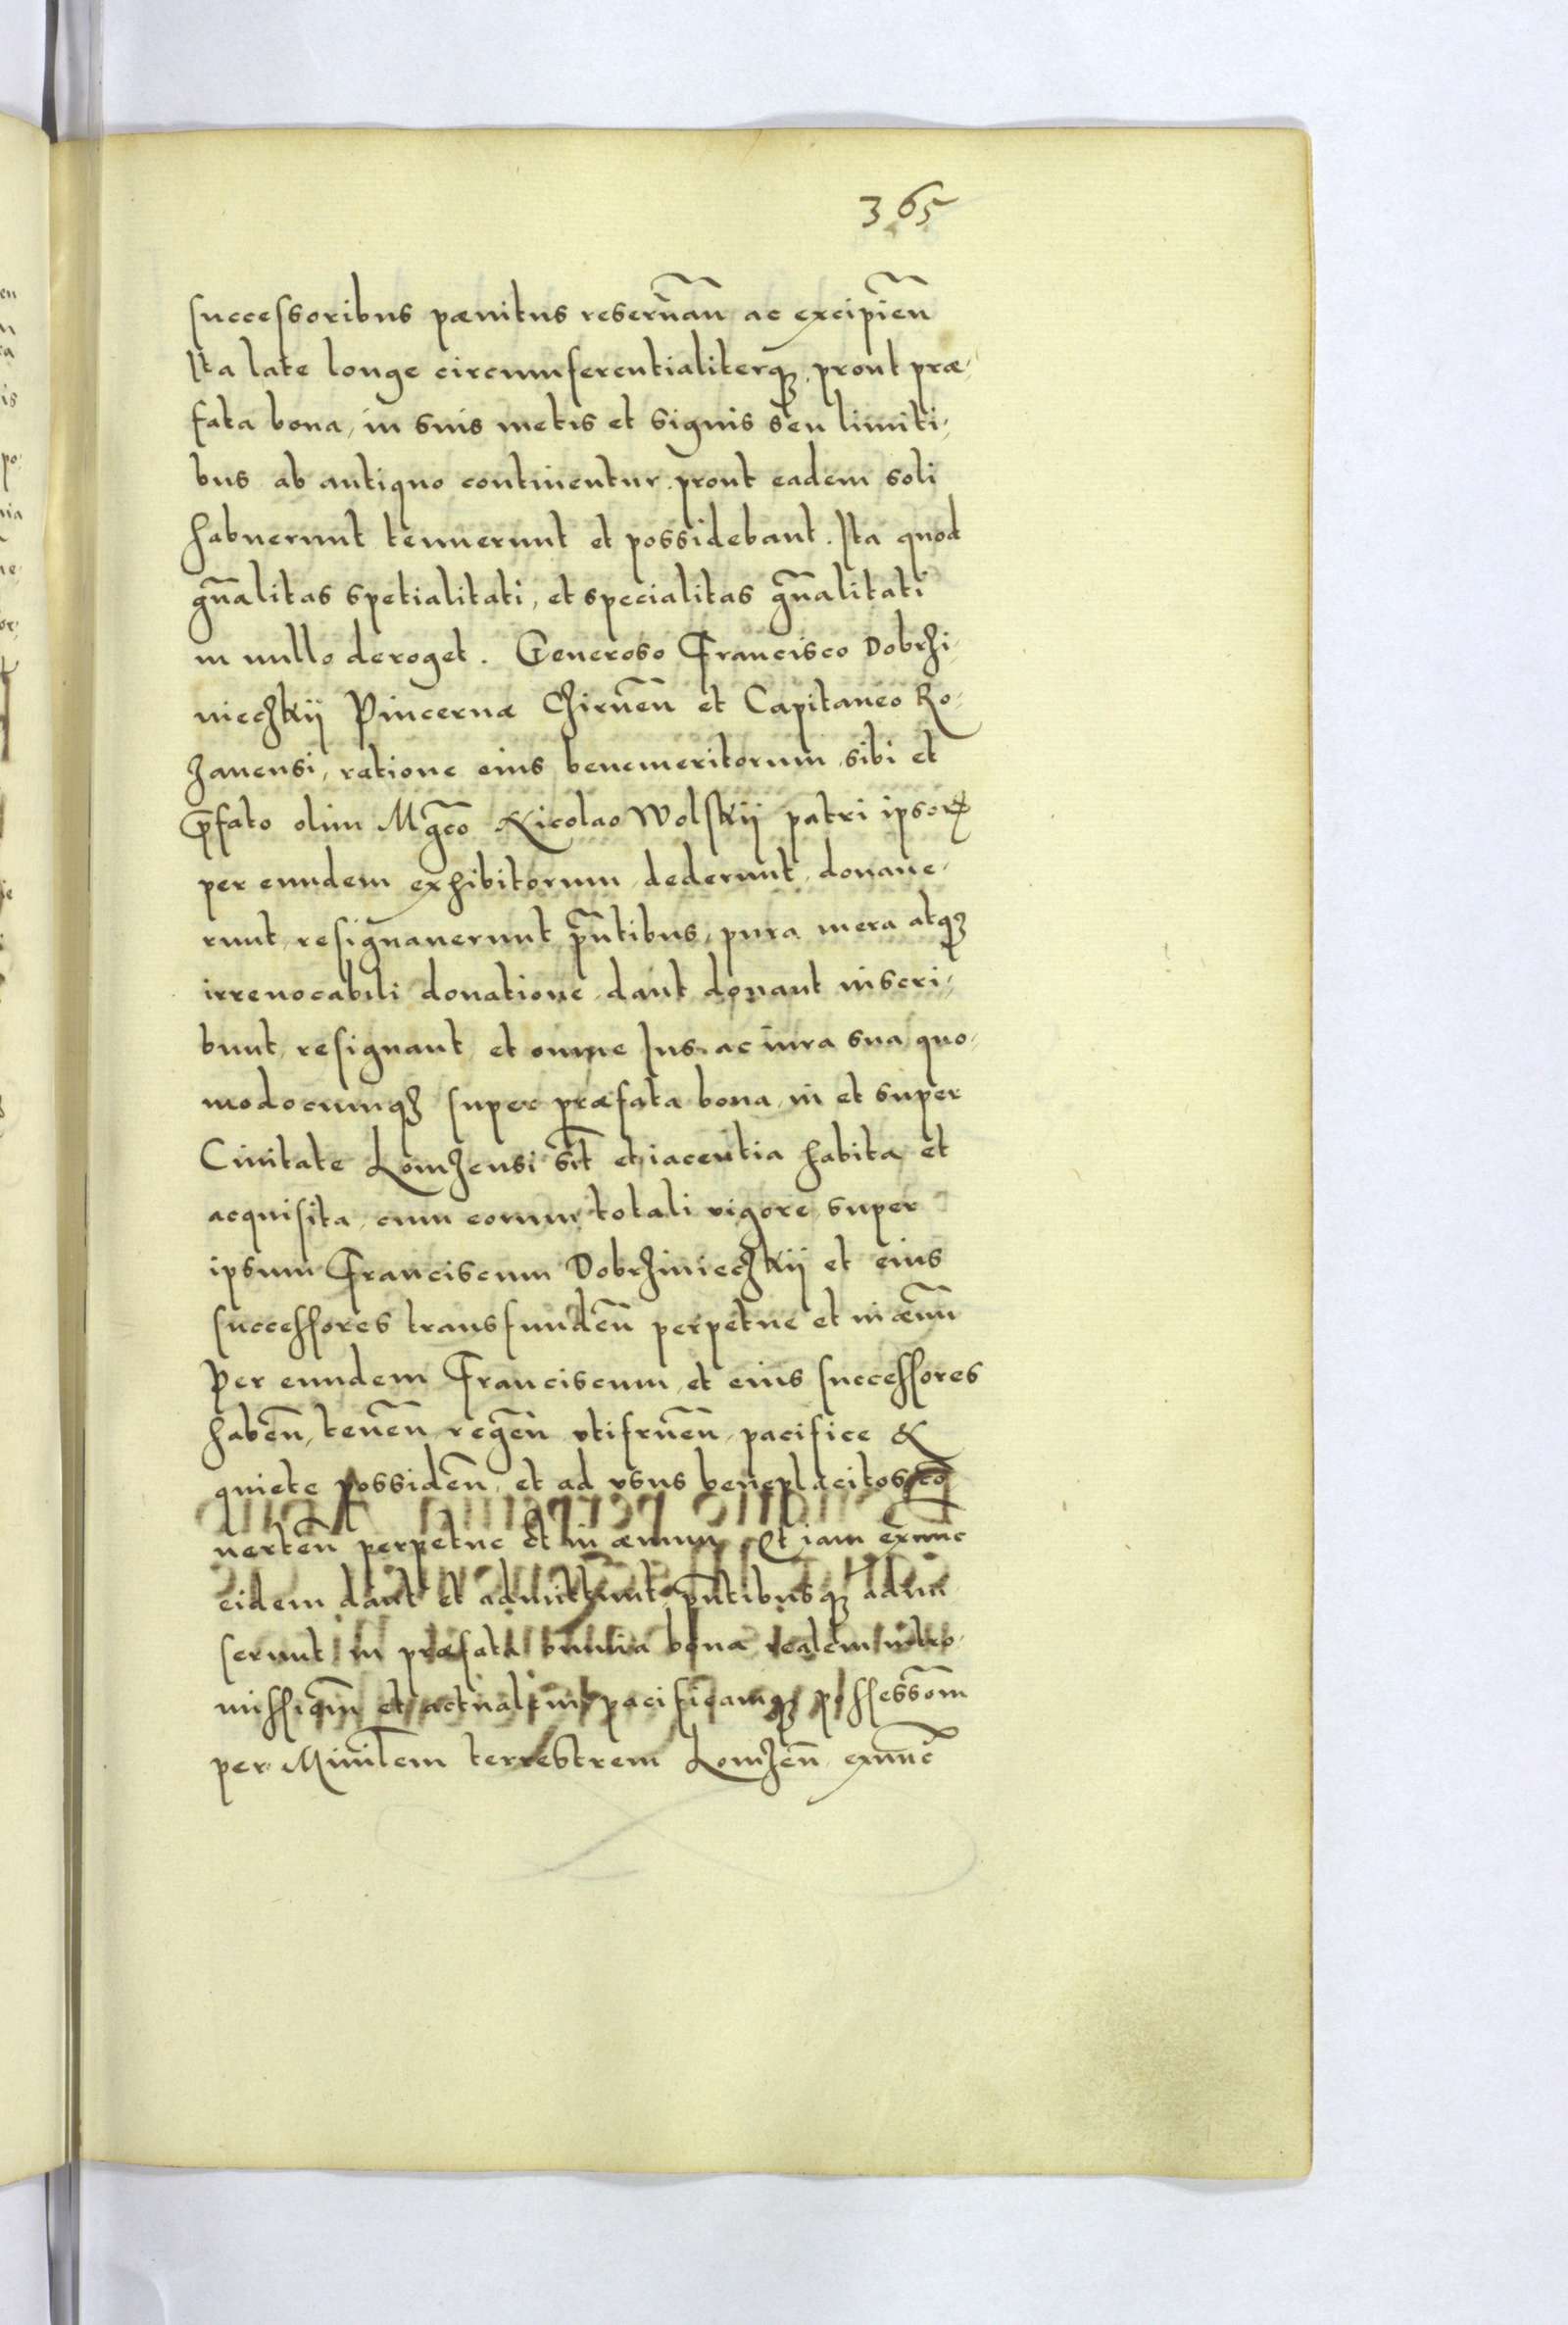 365
successoribus pænitus reserūan̄ ac excipien̄
Ita late longe circumferentialiterqꝫ, prout præ-
fata bona, in suis metis et signis seu limiti-
bus ab antiquo continentur, prout eadem soli
habuerunt tenuerunt et possidebant. Ita quod
gn̄alitas spetialitati, et specialitas gn̄alitati
in nullo deroget. Generoso Francisco Dobrzi-
nieczkij Pincernæ Czirnen̄ et Capitaneo Ro-
zanensi, ratione eius benemeritorum, sibi et
p̄fato olim Mgc̄o Nicolao Wolskij patri ipsoꝝ
per eundem exhibitorum, dederunt, donaue-
runt, resignauerunt pn̄tibus, pura mera atqꝫ
irreuocabili donatione, dant donant inscri-
bunt, resignant, et omne Ius, ac iura sua quo-
modocunqꝫ super præfata bona, in et super
Ciuitate Lomzensi sit̄ et iacentia habita et
acquisita, cum eorum totali rigore, super
ipsum Franciscum Dobrzinieczkij et eius
successores transfunden̄ perpetue et in æuū
Per eundem Franciscum, et eius successores
haben̄, tenen̄, regen̄ vtifruen̄, pacifice &
quiete possiden̄, et ad vsus beneplacitos cō
uerten̄ perpetue et in æuum, Et iam exnunc
eidem dant et admittunt, pn̄tibusqꝫ admi
serunt in præfata omnia bona realem intro-
missionē et actualem, pacificamqꝫ possessōm
per Ministem̄ terrestrem Lomzen̄ exnunc